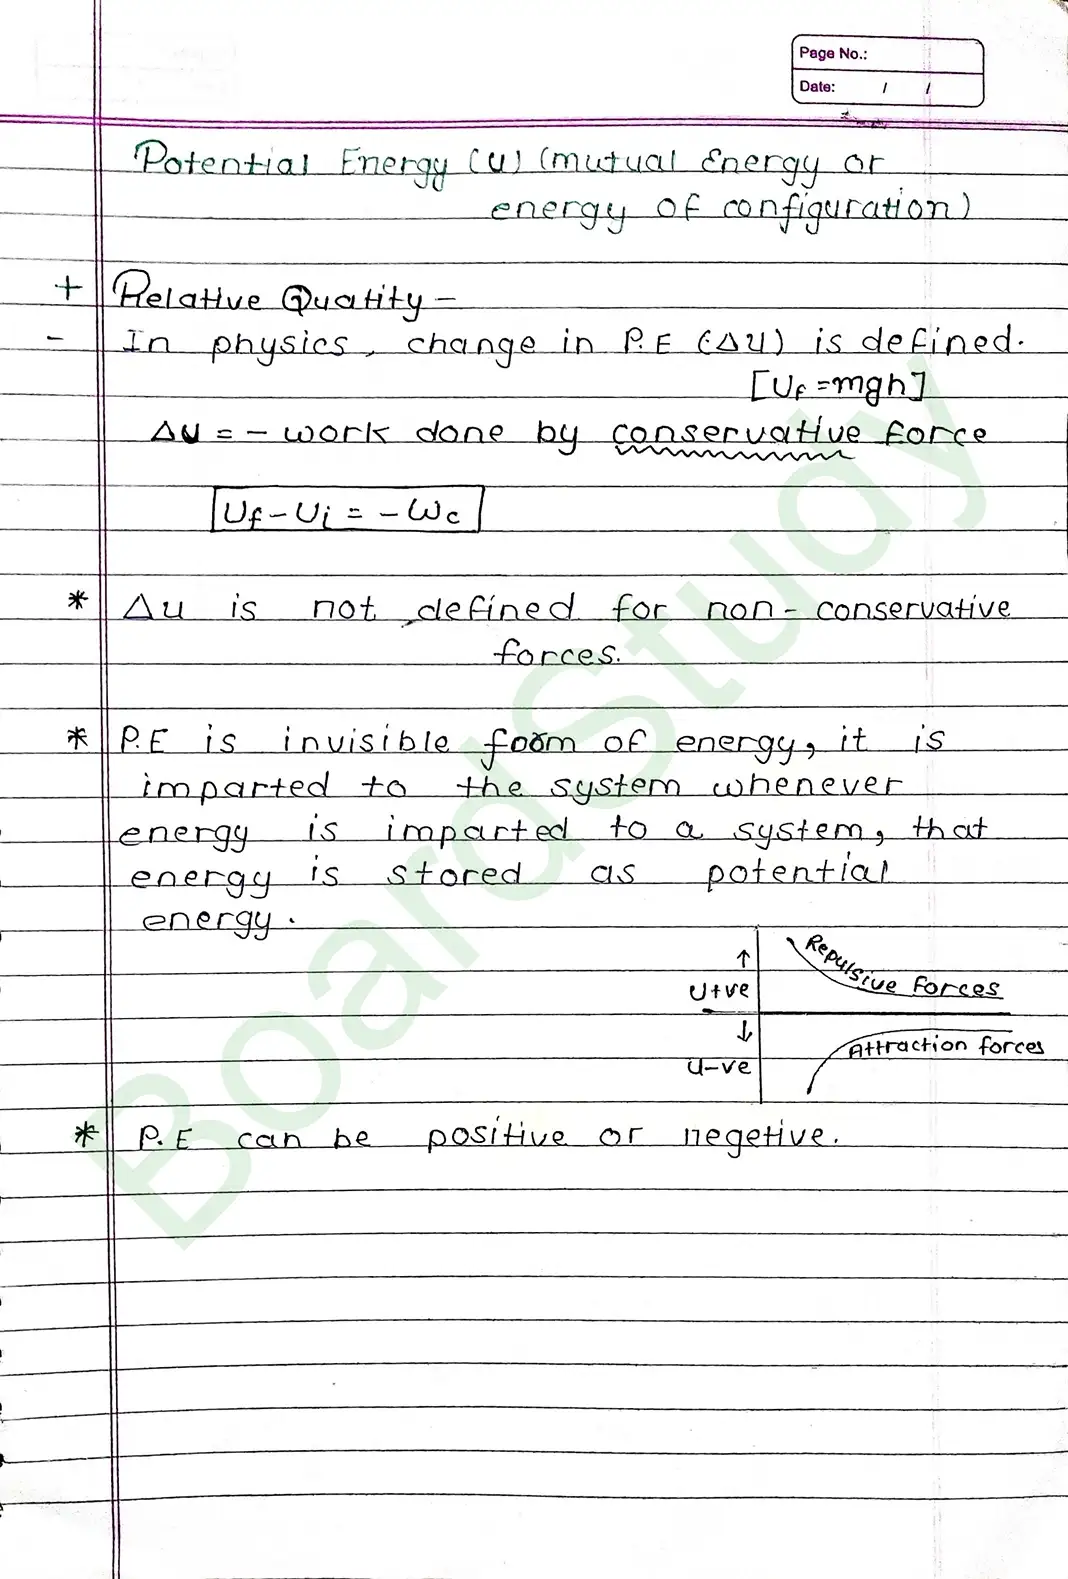 Page No.:
Date: / /
Potential Energy (U) (mutual Energy or
energy of configuration)
+ Relative Quatity -
- In physics, change in P.E (ΔU) is defined.
[Uf = mgh]
ΔU = - work done by conservative force
Uf - Ui = - Wc
* ΔU is not defined for non-conservative
forces.
* P.E is invisible foom of energy, it is
imparted to the system whenever
energy is imparted to a system, that
energy is stored as potential
energy.
↑
U+ve
Repulsive Forces
↓
U-ve
Attraction forces
* P.E can be positive or negetive.
BoardStudy